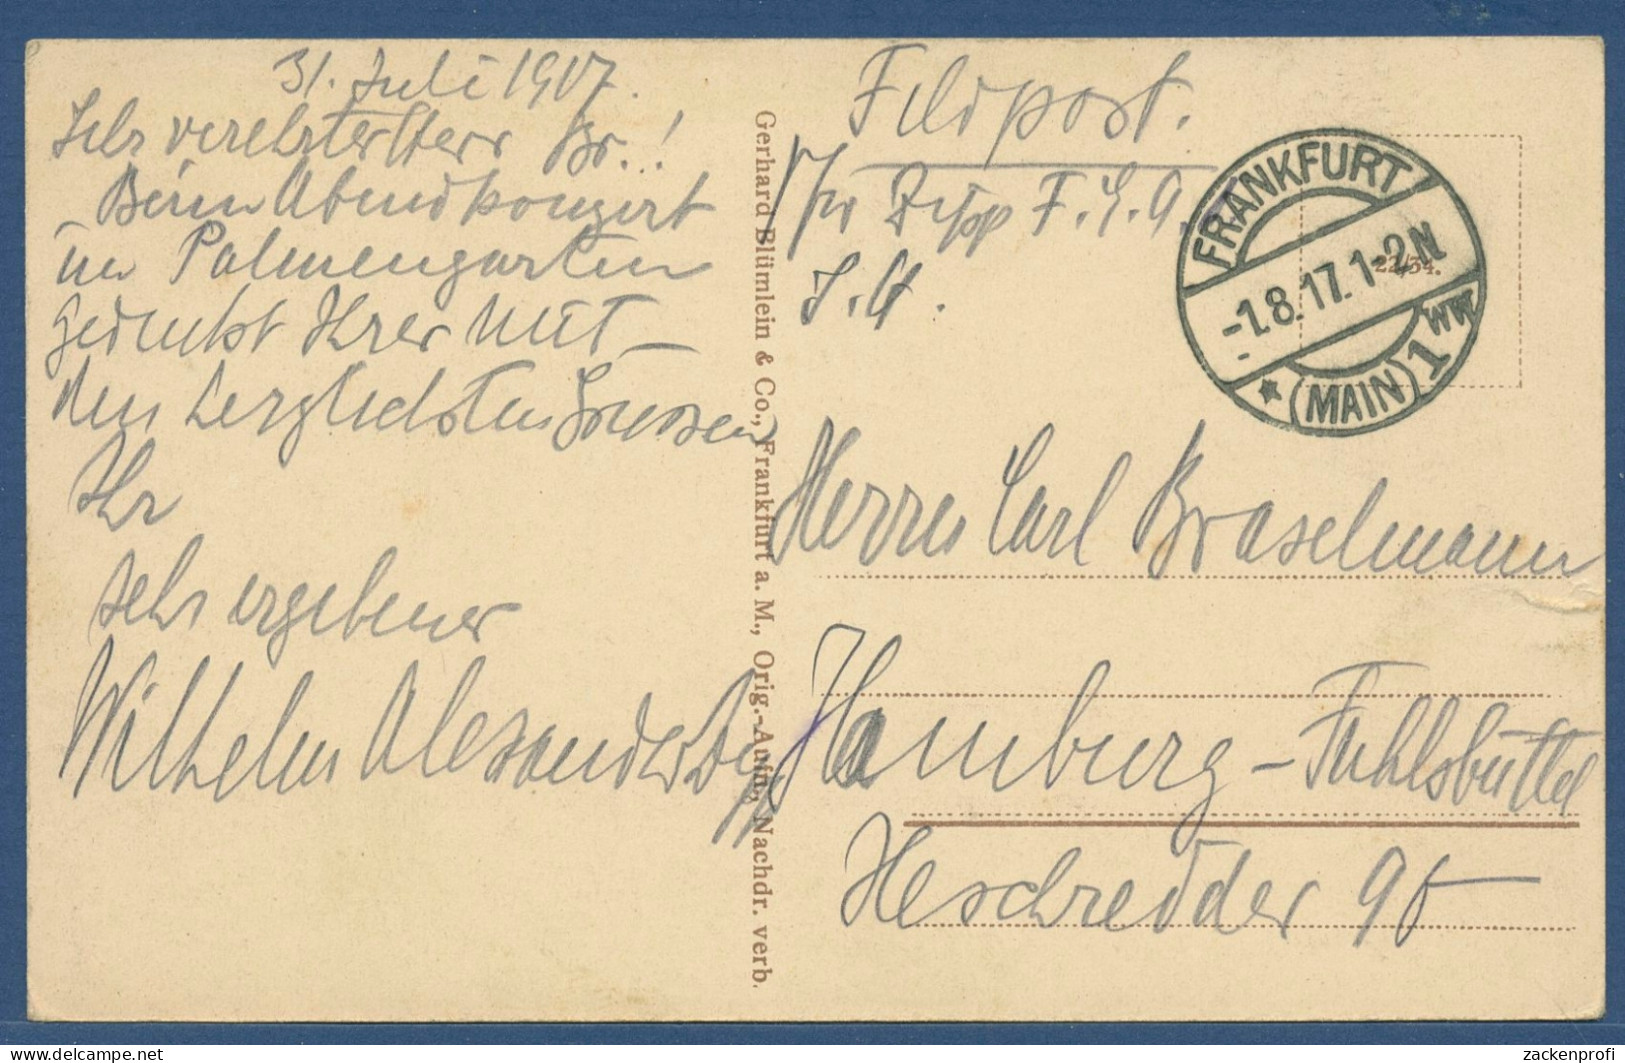 31. Juli 1917.
Sehr verehrter Herr Br.!
Beim Abendkonzert
im Palmengarten
gedenkt Ihrer mit
den herzlichsten Grüssen
Ihr
sehr ergebener
Wilhelm Alexander
Gerhard Blümlein & Co., Frankfurt a. M., Orig.-Aufn., Nachdr. verb.
Feldpost.
F. E. A.
FRANKFURT
-1.8.17. 1-2N
* (MAIN) 1 WW
22/34.
Herrn Carl Braselmann
Hamburg-Fuhlsbüttel
Heschredder 95
zackenprofi
delcampe.net